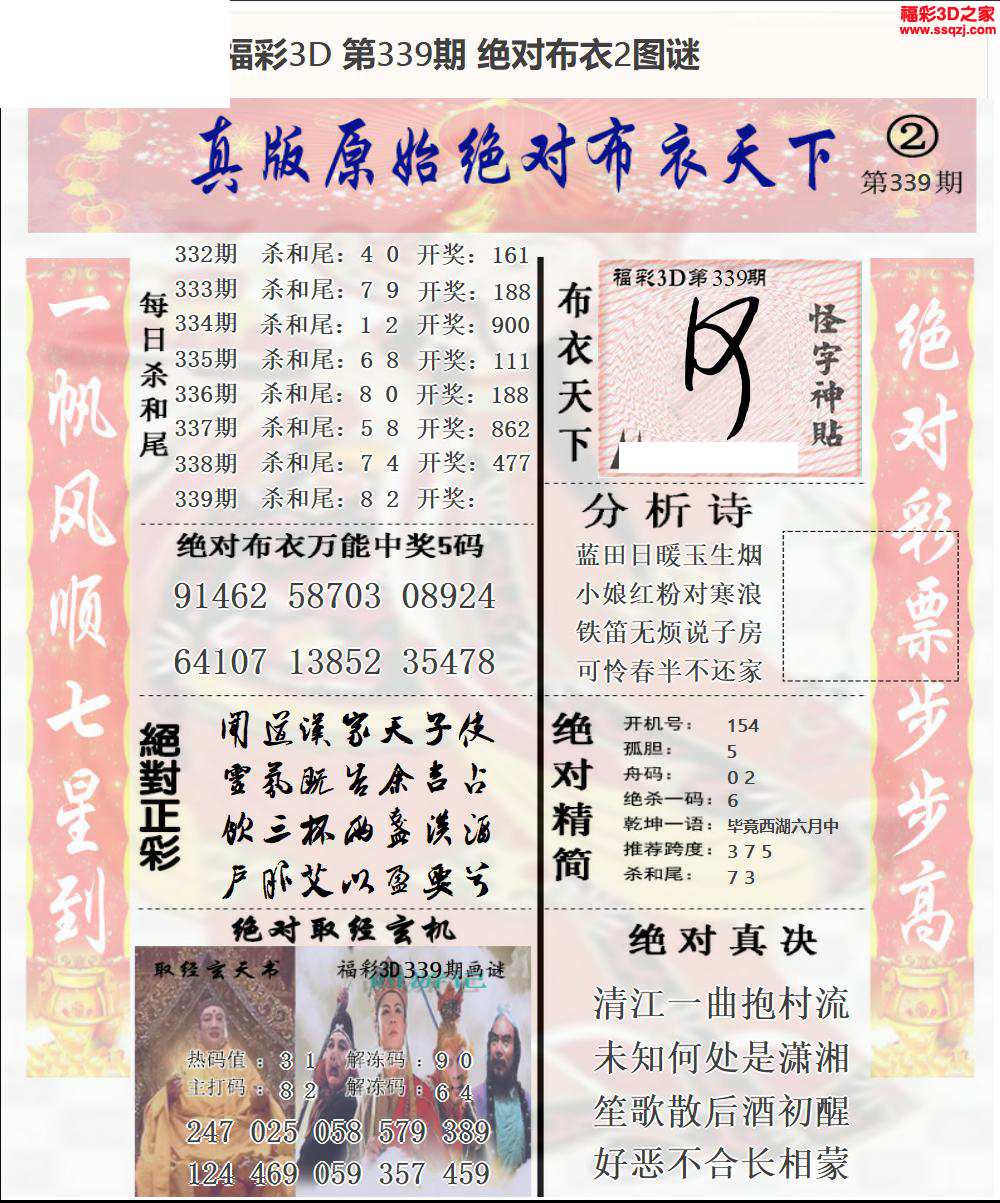 福彩3D之家
www.ssqzj.com
福彩3D 第339期 绝对布衣2图谜
真版原始绝对布衣天下
②
第339期
一帆风顺七星到
每日杀和尾
332期 杀和尾：4 0 开奖：161
333期 杀和尾：7 9 开奖：188
334期 杀和尾：1 2 开奖：900
335期 杀和尾：6 8 开奖：111
336期 杀和尾：8 0 开奖：188
337期 杀和尾：5 8 开奖：862
338期 杀和尾：7 4 开奖：477
339期 杀和尾：8 2 开奖：
绝对布衣万能中奖5码
91462 58703 08924
64107 13852 35478
絕對正彩
闻道汉家天子使
灵氛既告余吉占
饮三杯两盏淡酒
户服艾以盈要兮
绝对取经玄机
取经玄天书
福彩3D339期画谜
热码值：3 1 解冻码：9 0
主打码：8 2 解冻码：6 4
247 025 058 579 389
124 469 059 357 459
布衣天下
福彩3D第339期
怪字神贴
分析诗
蓝田日暖玉生烟
小娘红粉对寒浪
铁笛无烦说子房
可怜春半不还家
绝对精简
开机号： 154
孤胆： 5
舟码： 0 2
绝杀一码： 6
乾坤一语： 毕竟西湖六月中
推荐跨度： 3 7 5
杀和尾： 7 3
绝对真决
清江一曲抱村流
未知何处是潇湘
笙歌散后酒初醒
好恶不合长相蒙
绝对彩票步步高